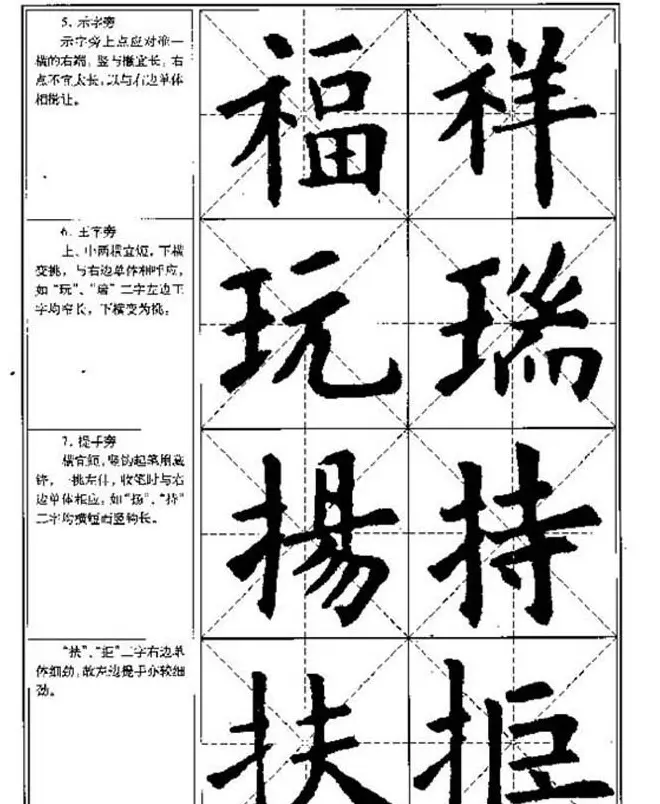 5. 示字旁
示字旁上点应对准一
横的右端，竖与撇宜长，右
点不宜太长，以与右边单体
相揖让。
福 祥
6. 王字旁
上、中两横宜短，下横
变挑，与右边单体相呼应，
如“玩”、“瑞”二字左边王
字均窄长，下横变为挑。
玩 瑞
7. 提手旁
横宜短，竖钩起笔用藏
锋，一挑左伸，收笔时与右
边单体相应，如“扬”、“持”
二字均横短而竖钩长。
揚 持
“扶”、“拒”二字右边单
体细劲，故左边提手亦较细
劲。
扶 拒